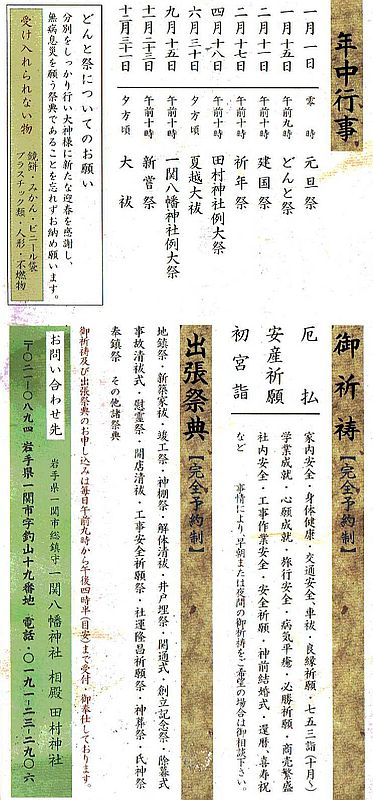 年中行事
一月一日 零時 元旦祭
一月十五日 午前九時 どんと祭
二月十一日 午前十時 建国祭
二月十七日 午前十時 祈年祭
四月十八日 午前十時 田村神社例大祭
六月三十日 夕方頃 夏越大祓
九月十五日 午前十時 一関八幡神社例大祭
十一月二十三日 午前十時 新嘗祭
十二月三十一日 夕方頃 大祓
どんと祭についてのお願い
分別をしっかり行い大神様に新たな迎春を感謝し、
無病息災を願う祭典であることを忘れずお納め願います。
受け入れられない物
鏡餅・みかん・ビニール袋
プラスチック類・人形・不燃物
御祈祷【完全予約制】
厄払
安産祈願
初宮詣
家内安全・身体健康・交通安全・車祓・良縁祈願・七五三詣(十月~)
学業成就・心願成就・旅行安全・病気平癒・必勝祈願・商売繁盛
社内安全・工事作業安全・安全祈願・神前結婚式・還暦・喜寿祝
など 事情により、早朝または夜間の御祈祷をご希望の場合は御相談下さい。
出張祭典【完全予約制】
地鎮祭・新築家祓・竣工祭・神棚祭・解体清祓・井戸埋祭・開通式・創立記念祭・除幕式
事故清祓式・慰霊祭・開店清祓・工事安全祈願祭・社運隆昌祈願祭・神葬祭・氏神祭
奉鎮祭 その他諸祭典
御祈祷及び出張祭典のお申し込みは毎日午前九時から午後四時半(目安)まで受付・御奉仕しております。
お問い合わせ先
岩手県一関市総鎮守 一関八幡神社 相殿 田村神社
〒〇二一-〇八九四 岩手県一関市字釣山十九番地 電話・〇一九一-二三-二九〇六